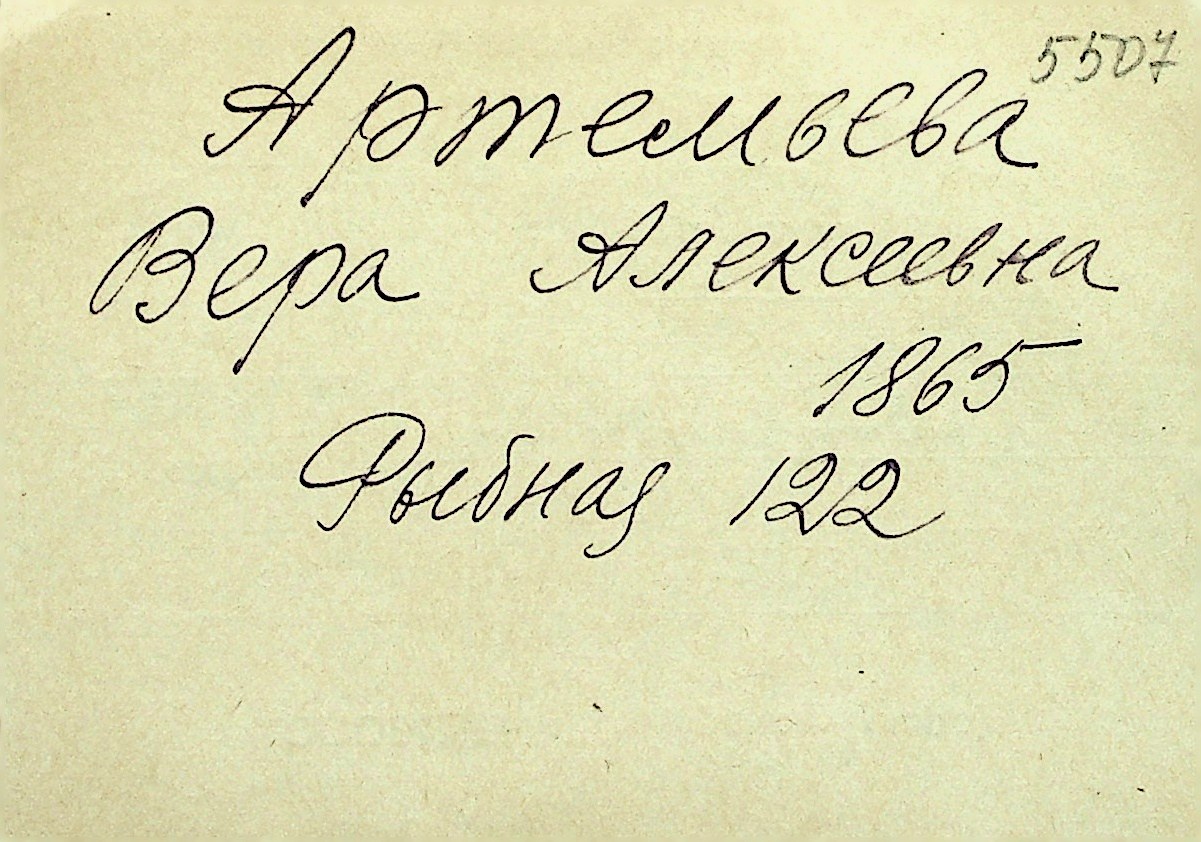 5507
Артемьева
Вера Алексеевна
1865
Рыбная 122